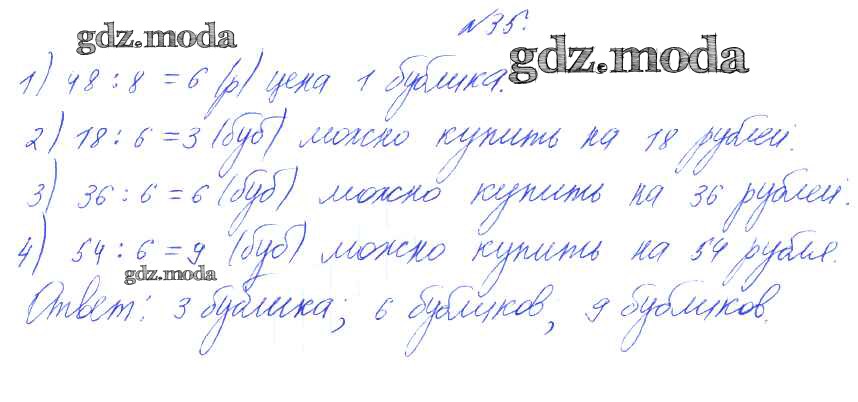 №35.
gdz.moda
gdz.moda
1) 48 : 8 = 6 (р) цена 1 бублика.
2) 18 : 6 = 3 (буб) можно купить на 18 рублей.
3) 36 : 6 = 6 (буб) можно купить на 36 рублей.
4) 54 : 6 = 9 (буб) можно купить на 54 рубля.
gdz.moda
Ответ: 3 бублика; 6 бубликов, 9 бубликов.